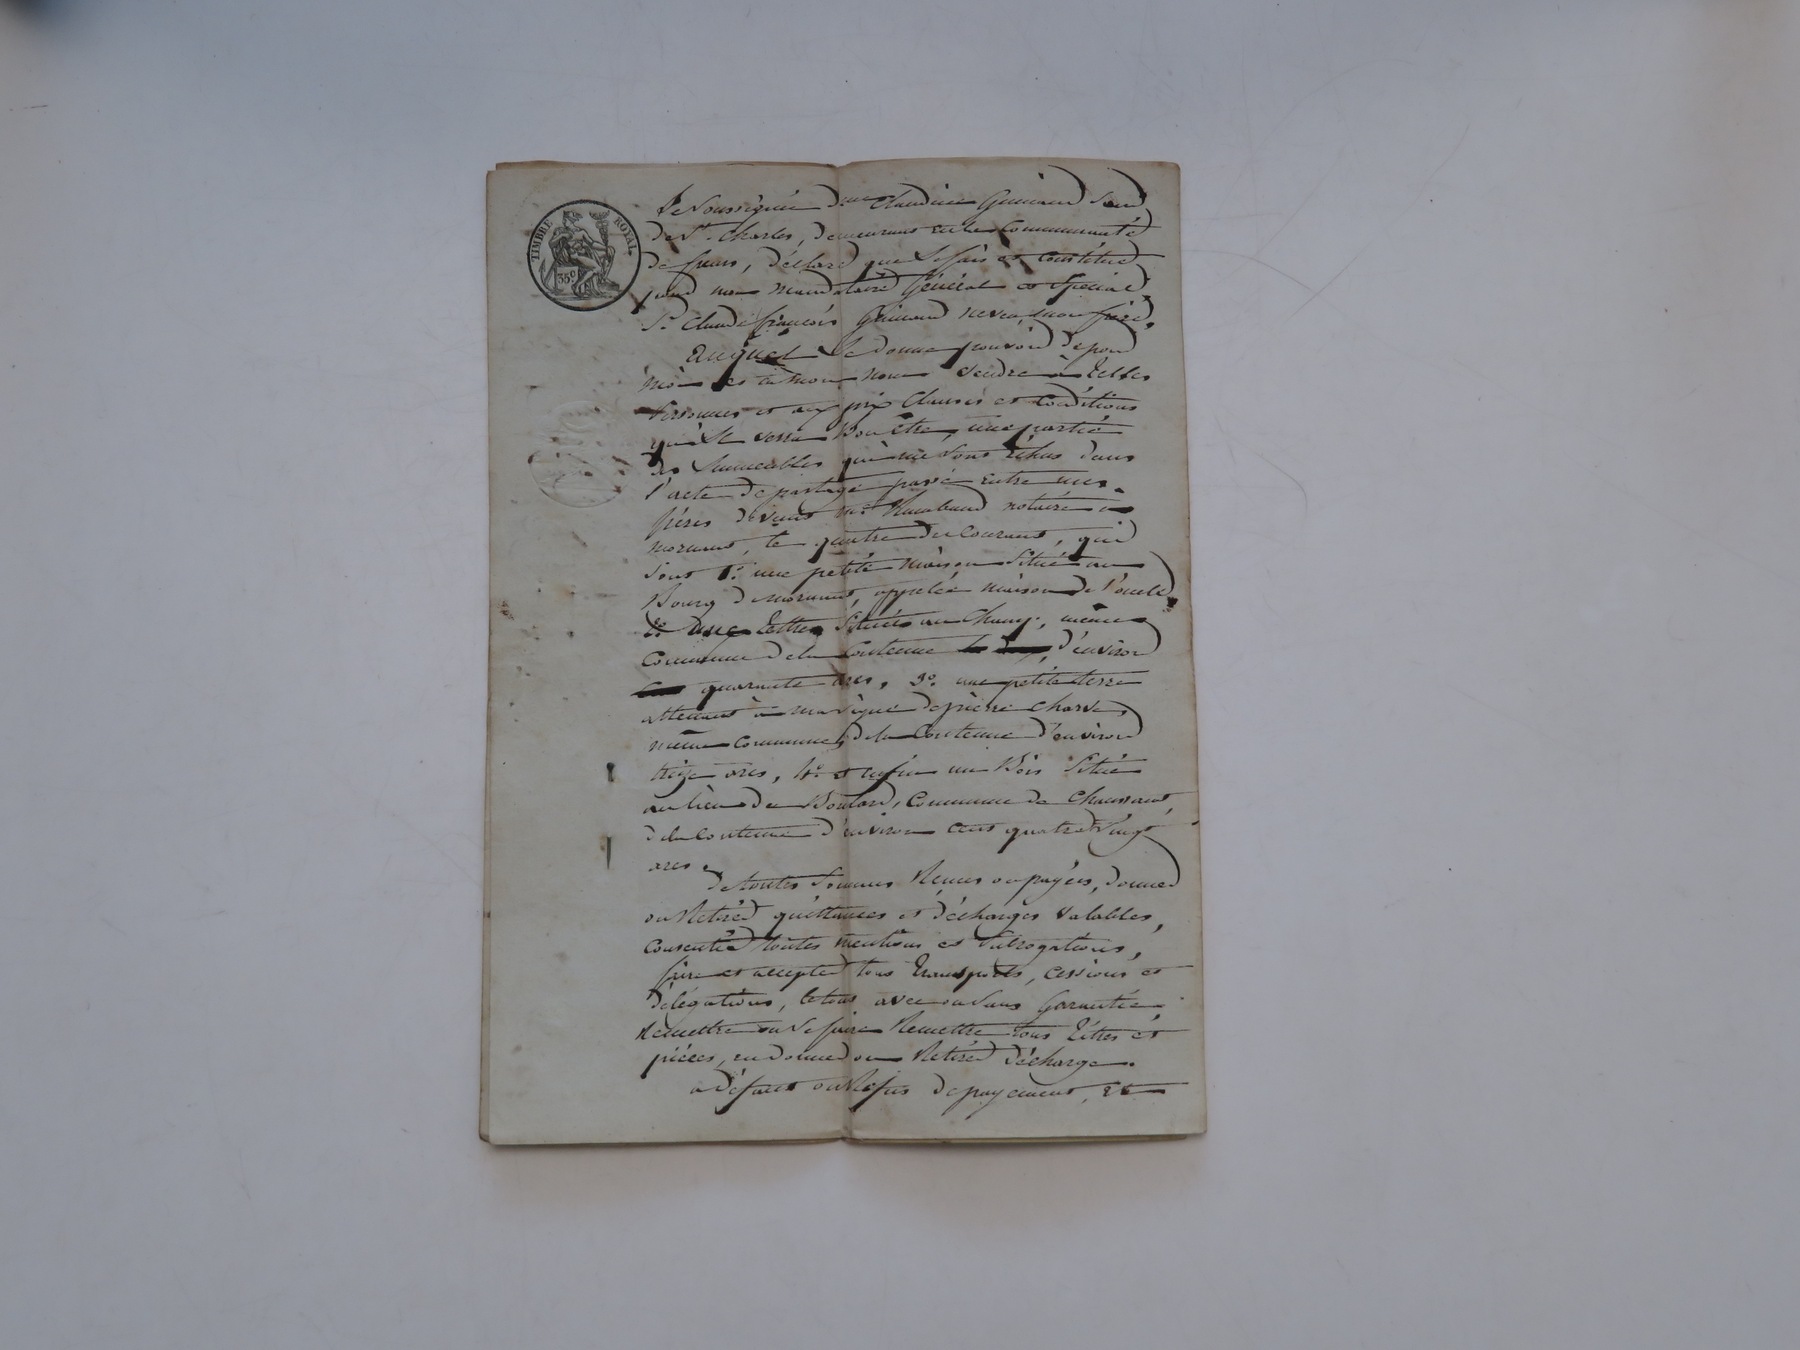 TIMBRE ROYAL
35 c
Je Soussignée d.me Claudine Guinand Sœur
de St. Charles, demeurant en la Communauté
de frans, déclare que Je fais et constitue
pour mon mandataire Général et Spécial,
Sr. Claude françois Guinand neveu, mon frère,
Auquel Je donne pouvoir de pour
moi et en mon nom vendre à telles
Personnes et aux prix Clauses et Conditions
qu'il verra Bon être, une partie
des Immeubles qui me sont échus dans
l'acte de partage passé entre mes
frères devant me. notaire à
mornant, le quatre du Courant, qui
sont 1o. une petite maison Située au
Bourg de mornant, appelée maison de l'oncle,
2o. une terre Située au Champ, même
Commune de la Contenue d'environ
quarante ares, 3o. une petite terre
attenant à ma vigne de pierre Charve
même commune, de la Contenue d'environ
treize ares, 4o. et enfin un Bois Situé
au lieu de Boulard, Commune de Chaussant,
de la Contenue d'environ cent quatre Vingt
ares.
de toutes Sommes Reçues ou payées, donner
ou Retirer quittances et décharges valables,
Consentir toutes mentions et Subrogations,
faire et accepter tous transports, cessions et
délégations, le tout avec ou sans Garantie,
Remettre ou Se faire Remettre tous titres et
pièces, en donner ou Retirer décharge.
a Défaut ou Refus de payement, et